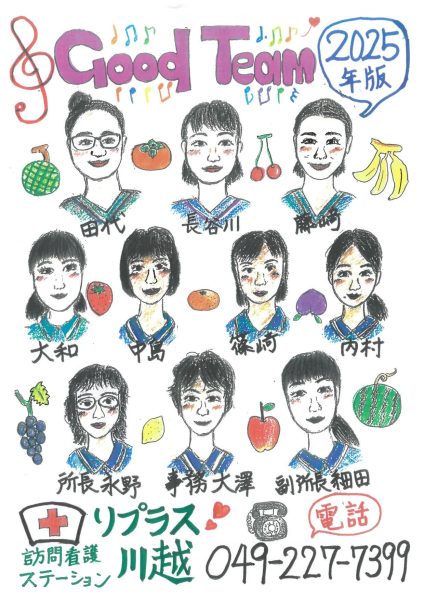 Good Team
2025
年版
田代
長谷川
藤崎
大和
中島
篠崎
内村
所長永野
事務大澤
副所長細田
訪問看護
ステーション
リプラス
川越
電話
049-227-7399